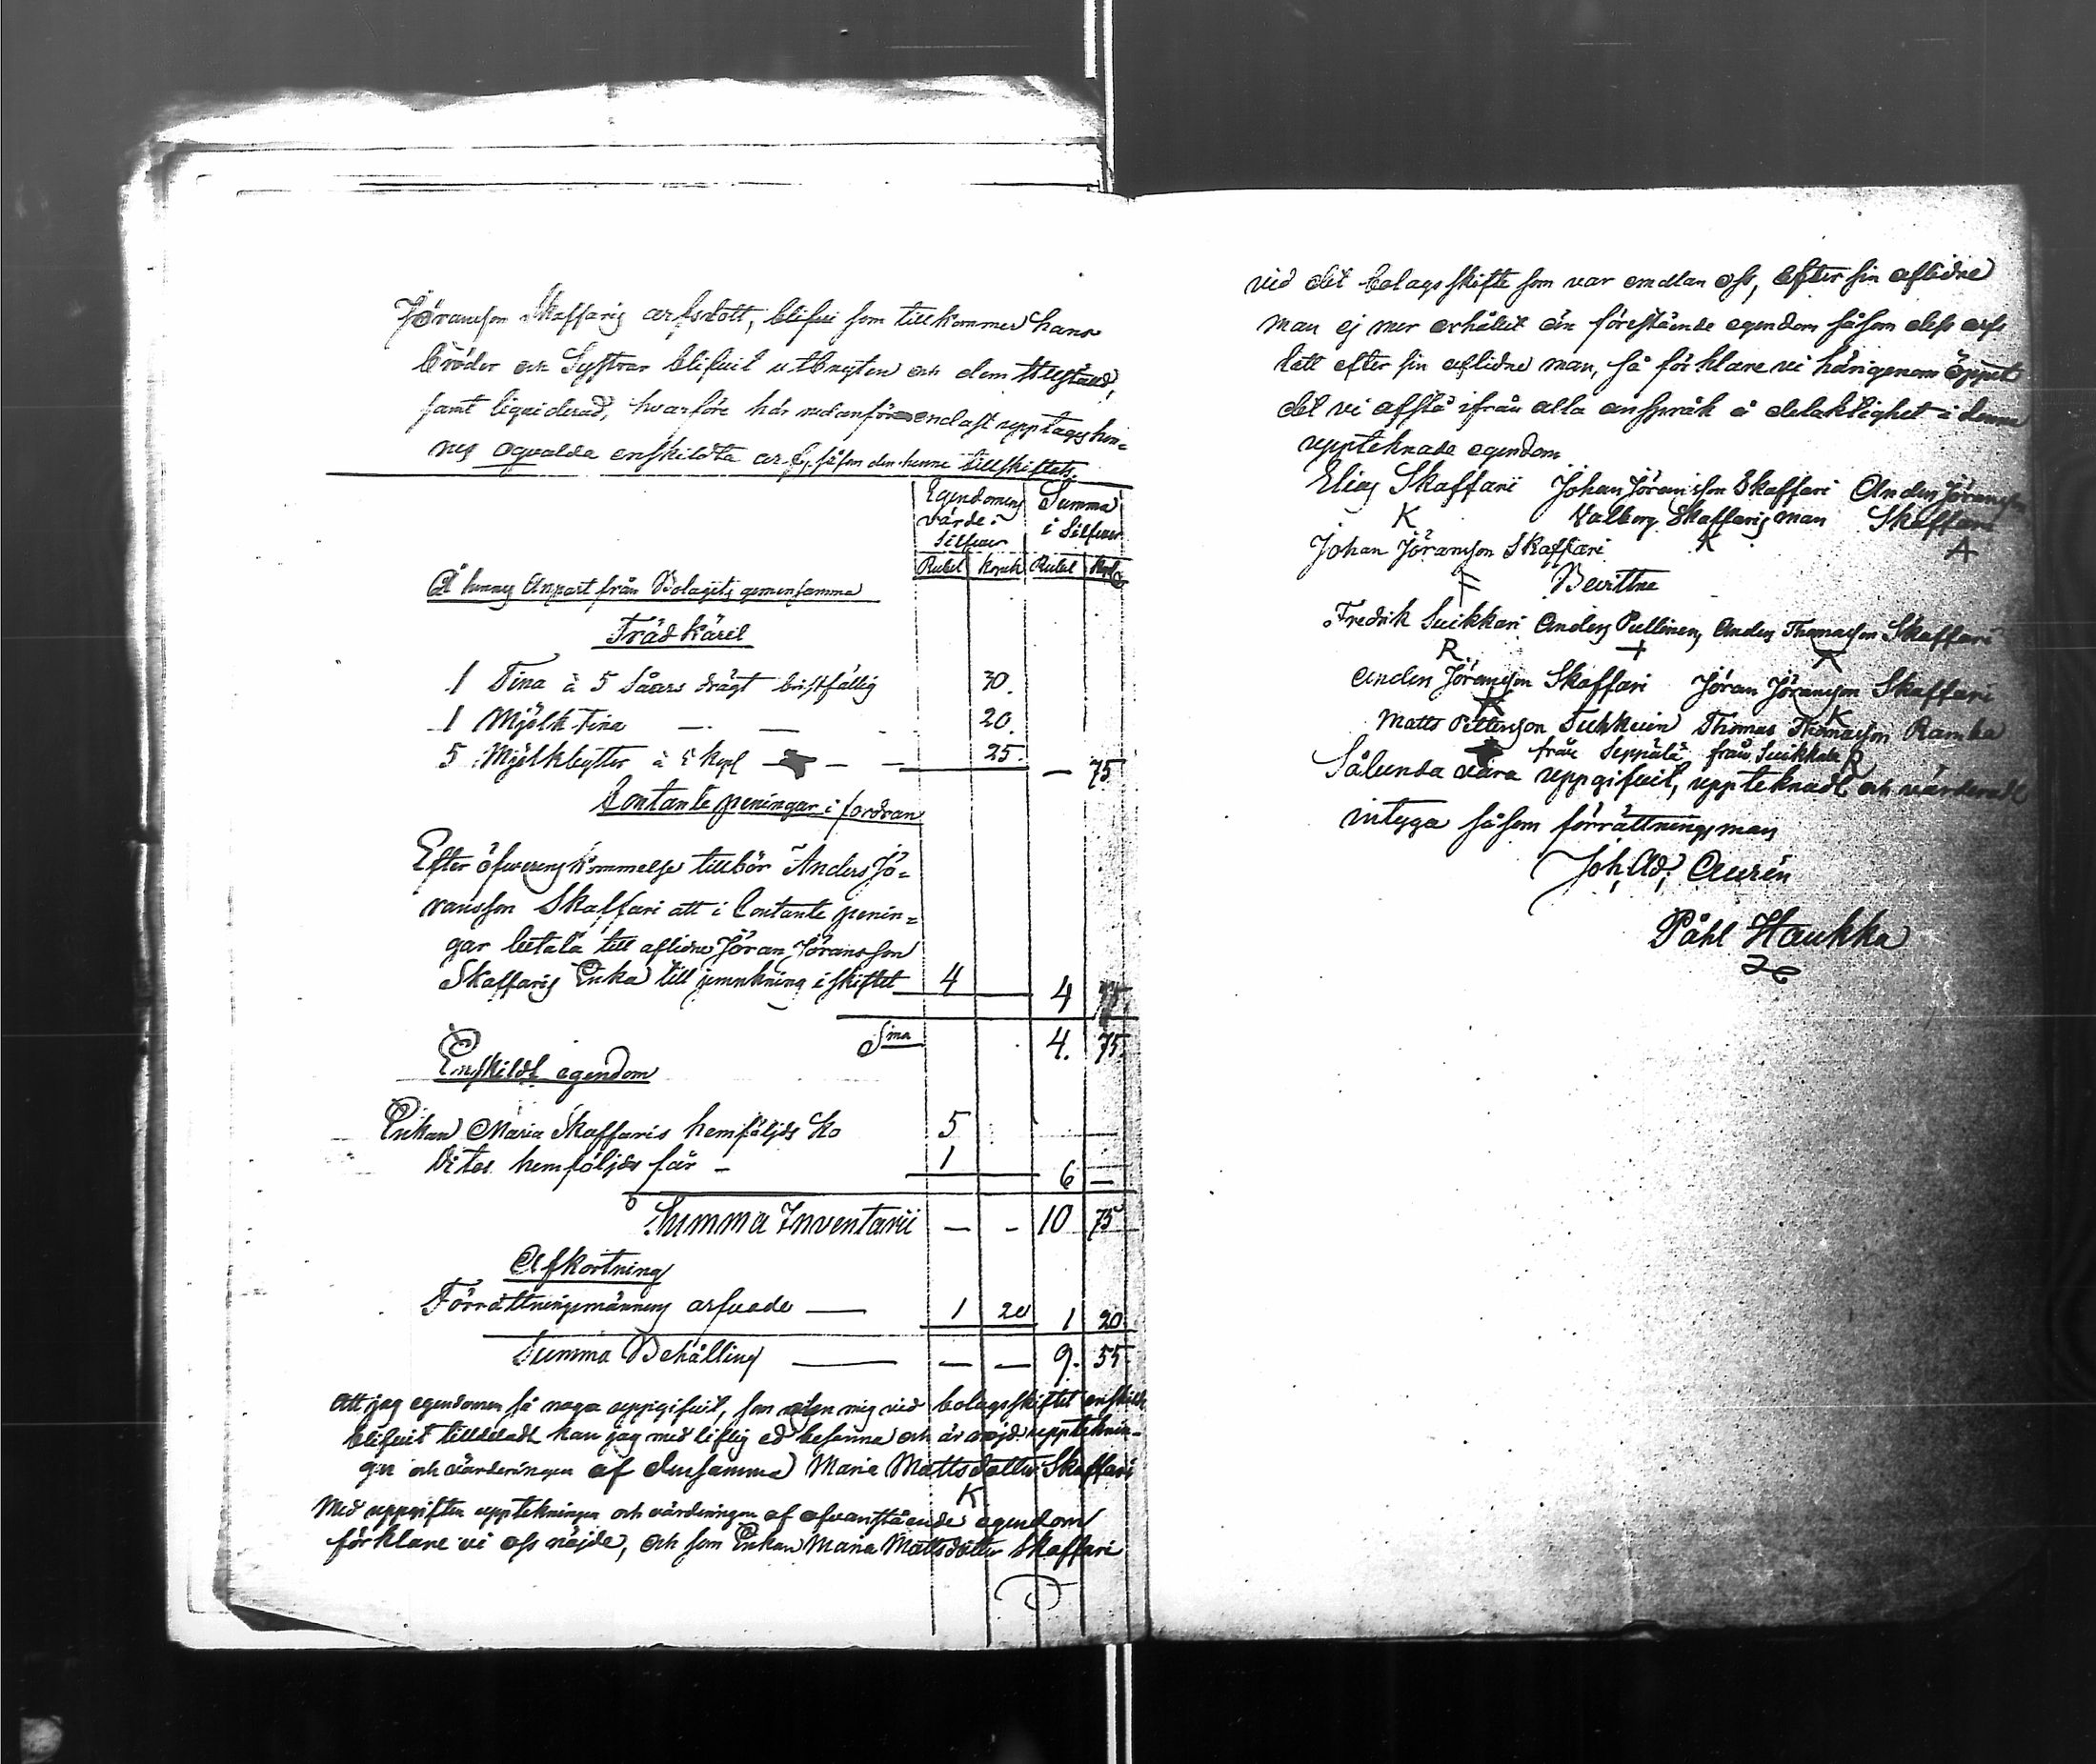 Jöransson Skaffaris arfslott, blifui som tillkommer hans
bröder och Systrar blifuit utbrÿten och dem tillstäld,
samt liquiderad, hvarföre här nedanföre endast upptages hen=
nes enskildta arf, såsom den henne tillskiftets.
Egendomens Summa
värde i i Silfuer
Silfuer
Rubel Kopek Rubel Kopk
Å hennes Anpart från Bolagets gemensamma
Trädkäril
1 Tina à 5 Såars drägt bristfällig 30.
1 Mjölk Tina — — 20.
5 Mjölkbÿtter à 5 Kopk — — — 25. — 75
Contante peningar i fordran
Efter öfverenskommelse tillbör Anders Jö=
ransson Skaffari att i Contante penin=
gar betala till aflidne Jöran Jöransson
Skaffaris Enka till jemnkning i skiftet 4 4
Sma 4. 75.
Enskildt egendom
Enkan Maria Skaffaris hemföljds Ko 5
Dites hemföljds får — 1 6 —
Summa Inventarii — - 10 75
Afkortning
Förrättningsmännens arfuode — 1 20 1 20.
Summa Behålling — — — 9. 55
Att jag egendomen så noga uppgifuit, som den mig vid bolagsskiftet enskildt
blifuit tilldeladt kan jag med liflig ed besanna och är nöjd uppteknin-
gen och värderingen af densamma Maria Mattsdotter Skaffari
K
Med uppgiften uppteckningen och värderingen af ofvanstående egendom
förklare vi oss nöjde, och som Enkan Maria Mattsdotter Skaffari
vid det bolagsskifte som var emellan oss, efter sin aflidne
man ej mer erhållit än förestående egendom såsom dess arfs
lott efter sin aflidne man, så förklare vi härigenom öppet
det vi afstå ifrån alla anspråk å delaktighet i denna
upptecknade egendom
Elias Skaffari Johan Jöransson Skaffari Anders Jöransson
K Valborg Skaffaris man Skaffari
Johan Jöransson Skaffari K A
= Bevittna
Fredrik Suikkari Anders Pullinen, Anders Thomasson Skaffari
R. +
Anders Jöransson Skaffari Jöran Jöransson Skaffari
K
Matts Pettersson Suhkuin Thomas Thomasson Ramka
från Seppälä från Suikkala R
Sålunda vara uppgifuit, uppteknadt och värderadt
intyga såsom förrättningsman
Joh, Ad; Aurén
Påhl Haukka